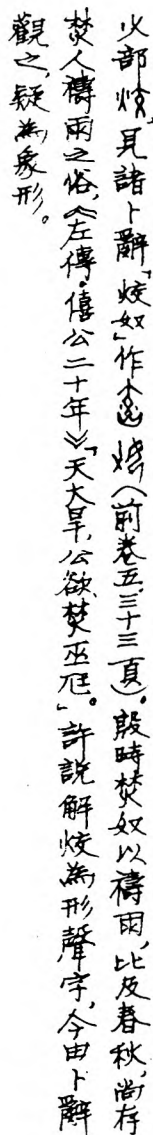 火部烄,見諸卜辭「烄奴」作 (前卷五、三十三頁)。殷時焚奴以禱雨,比及春秋,尚存
焚人禱雨之俗,《左傳·僖公二十年》「天大旱,公欲焚巫尫。」許説解烄為形聲字,今由卜辭
觀之,疑為象形。